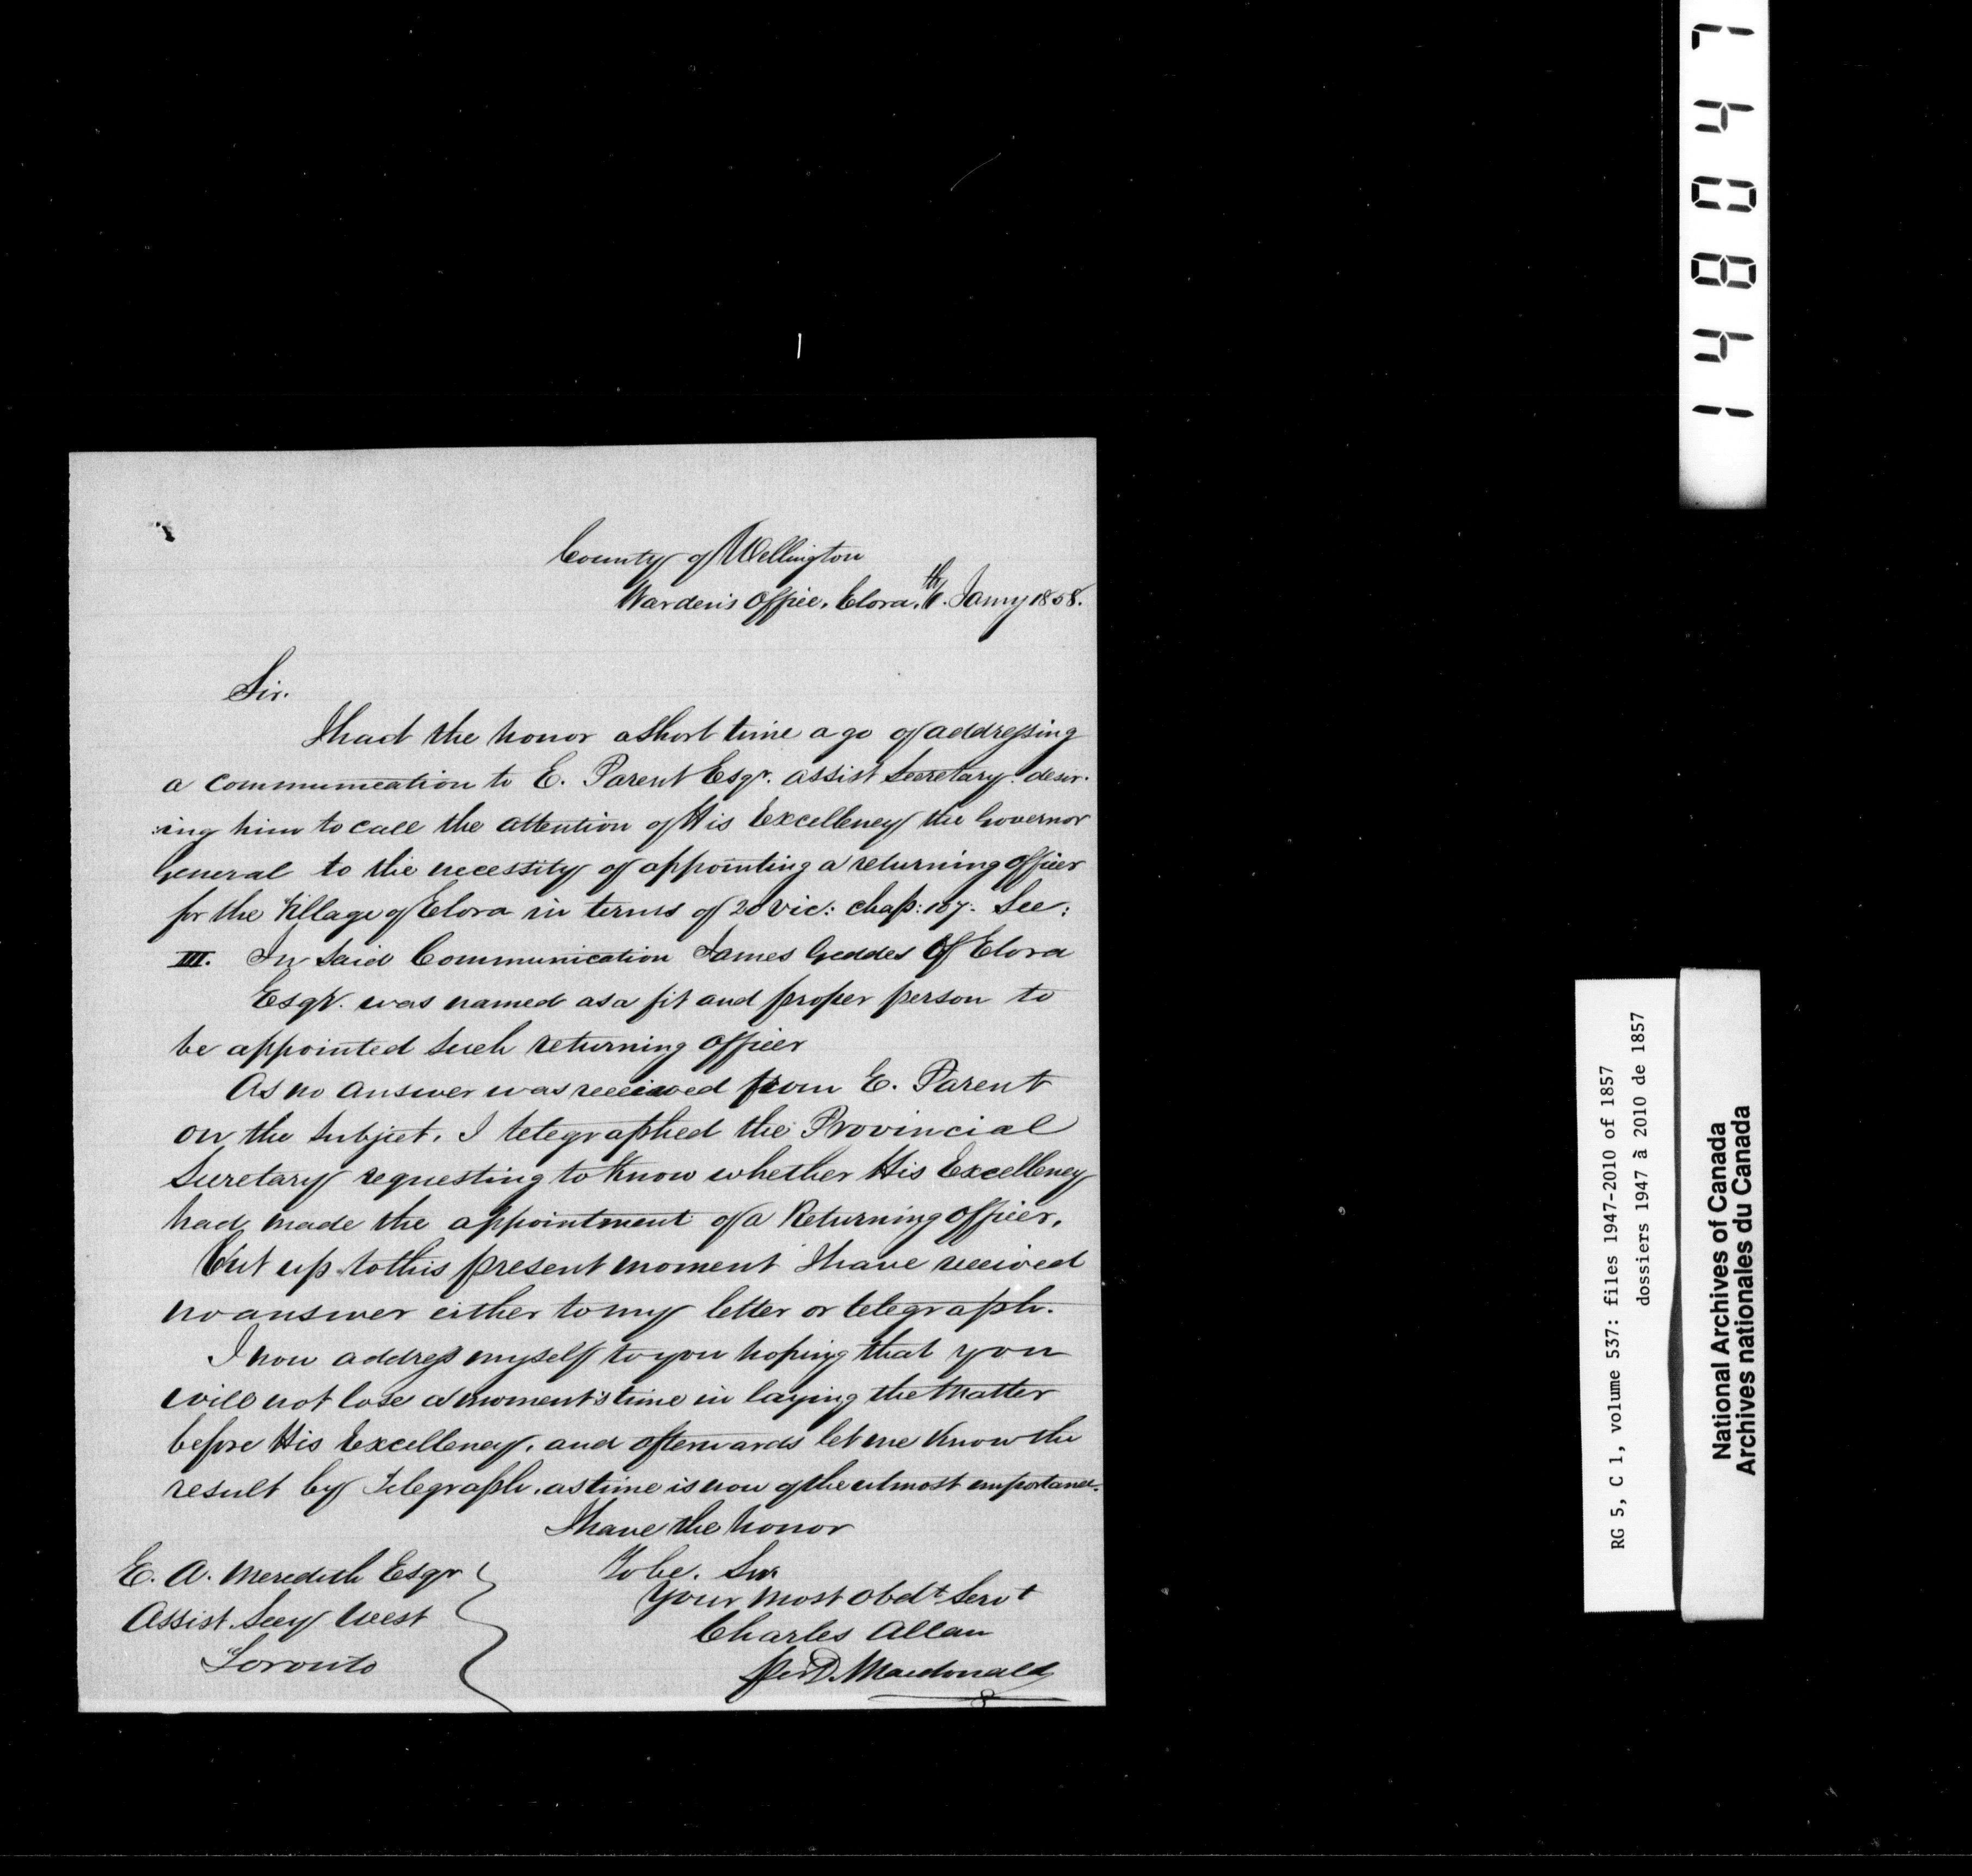 County of Wellington
Warden's Office, Elora, th Jany 1858.
Sir.
I had the honor a Short time ago of addressing
a communication to E. Parent Esqr. assist Secretary. desir-
:ing him to call the attention of His Excellency the Governor
General to the necessity of appointing a returning Officer
for the Village of Elora in terms of 20 Vic: chap: 107. Sec:
III. In said Communication James Geddes Of Elora
Esqr. was named as a fit and proper person to
be appointed such returning officer
As no answer was received from E. Parent
on the subject, I telegraphed the Provincial
Secretary requesting to know whether His Excellency
had made the appointment of a Returning Officer,
But up to this present moment I have received
no answer either to my letter or telegraph.
I now address myself to you hoping that you
will not lose a moment's time in laying the Matter
before His Excellency, and afterwards let me know the
result by Telegraph, as time is now of the utmost importance.
I have the honor
To be, Sir
Your most Obdt Servt
Charles Allan
per D. Macdonald
E. A. Meredith Esqr
Assist. Secy West
Toronto
148047
RG 5, C 1, volume 537: files 1947-2010 of 1857
dossiers 1947 à 2010 de 1857
National Archives of Canada
Archives nationales du Canada